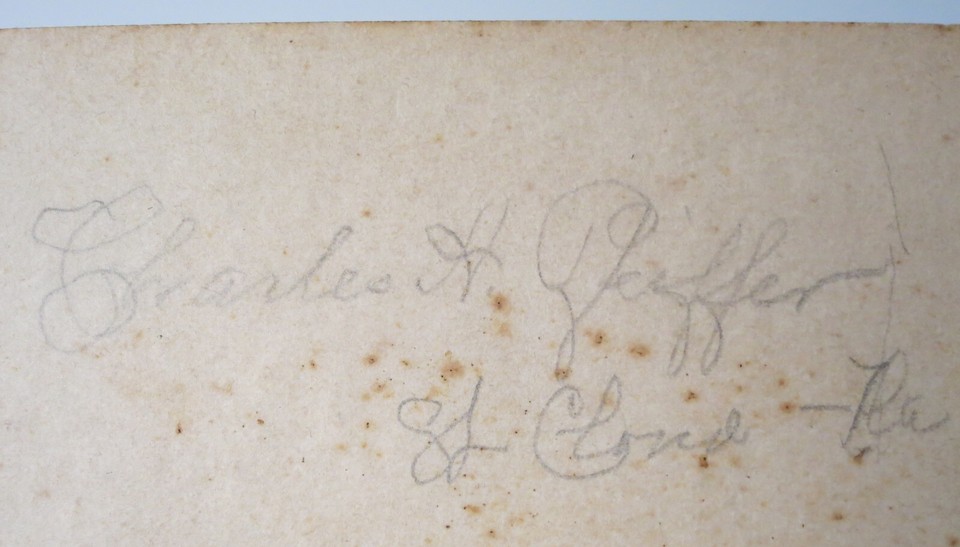 Charles H. Peiffer
St Cloud - Fla